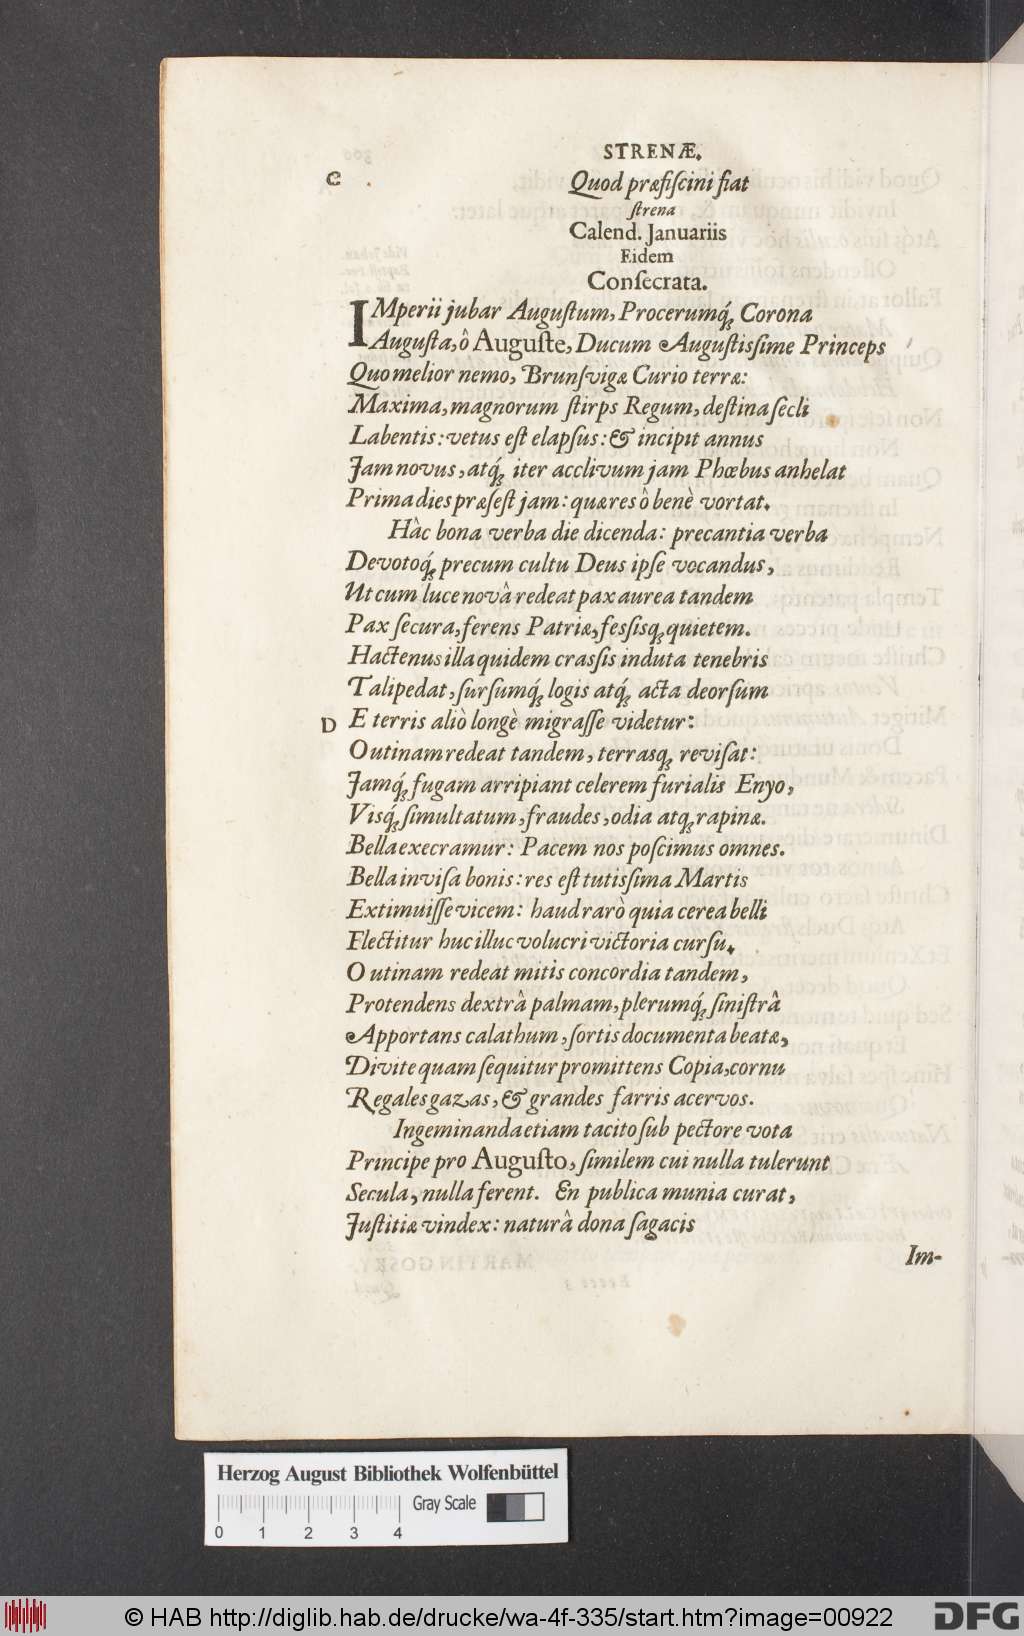 STRENÆ.
C
Quod præfiſcini fiat
ſtrena
Calend. Januariis
Eidem
Conſecrata.
IMperii jubar Auguſtum, Procerumq́; Corona
Auguſta, ô Auguſte, Ducum Auguſtisſime Princeps
Quo melior nemo, Brunſvigæ Curio terræ:
Maxima, magnorum ſtirps Regum, deſtina ſecli
Labentis: vetus eſt elapſus: & incipit annus
Jam novus, atq́; iter acclivum jam Phœbus anhelat
Prima dies præſeſt jam: quæ res ô benè vortat.
Hâc bona verba die dicenda: precantia verba
Devotoq́; precum cultu Deus ipſe vocandus,
Ut cum luce novâ redeat pax aurea tandem
Pax ſecura, ferens Patriæ, fesſisq; quietem.
Hactenus illa quidem crasſis induta tenebris
Talipedat, ſurſumq́; logis atq́; acta deorſum
D E terris aliò longè migraſſe videtur:
O utinam redeat tandem, terrasq; reviſat:
Jamq́; fugam arripiant celerem furialis Enyo,
Visq́; ſimultatum, fraudes, odia atq; rapinæ.
Bella execramur: Pacem nos poſcimus omnes.
Bella inviſa bonis: res eſt tutisſima Martis
Extimuiſſe vicem: haud rarò quia cerea belli
Flectitur huc illuc volucri victoria curſu.
O utinam redeat mitis concordia tandem,
Protendens dextrâ palmam, plerumq́; ſiniſtrâ
Apportans calathum, ſortis documenta beatæ,
Divite quam ſequitur promittens Copia, cornu
Regales gazas, & grandes farris acervos.
Ingeminanda etiam tacito ſub pectore vota
Principe pro Auguſto, ſimilem cui nulla tulerunt
Secula, nulla ferent. En publica munia curat,
Juſtitiæ vindex: naturâ dona ſagacis
Im-
Herzog August Bibliothek Wolfenbüttel
Gray Scale
0 1 2 3 4
© HAB http://diglib.hab.de/drucke/wa-4f-335/start.htm?image=00922
DFG